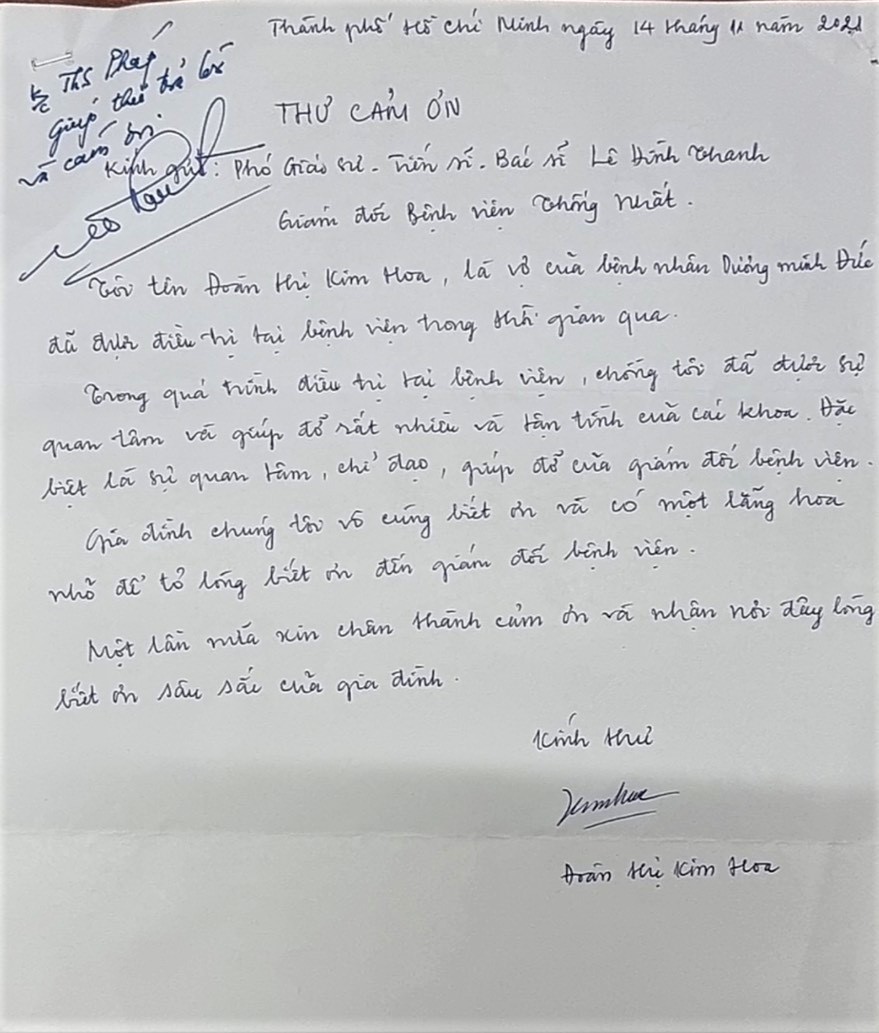 Thành phố Hồ Chí Minh ngày 14 tháng 11 năm 2021
K/c Ths Pháp
giúp thư trả lời
và cám ơn.
THƯ CẢM ƠN
Kính gửi: Phó Giáo sư - Tiến sĩ - Bác sĩ Lê Đình Thanh
Giám đốc Bệnh viện Thống Nhất.
Tôi tên Đoàn Thị Kim Hoa, là vợ của bệnh nhân Dương Minh Đức
đã được điều trị tại bệnh viện trong thời gian qua.
Trong quá trình điều trị tại bệnh viện, chúng tôi đã được sự
quan tâm và giúp đỡ rất nhiều và tận tình của các khoa. Đặc
biệt là sự quan tâm, chỉ đạo, giúp đỡ của giám đốc bệnh viện.
Gia đình chúng tôi vô cùng biết ơn và có một lẵng hoa
nhỏ để tỏ lòng biết ơn đến giám đốc bệnh viện.
Một lần nữa xin chân thành cảm ơn và nhận nơi đây lòng
biết ơn sâu sắc của gia đình.
Kính thư
Kimhoa
Đoàn Thị Kim Hoa